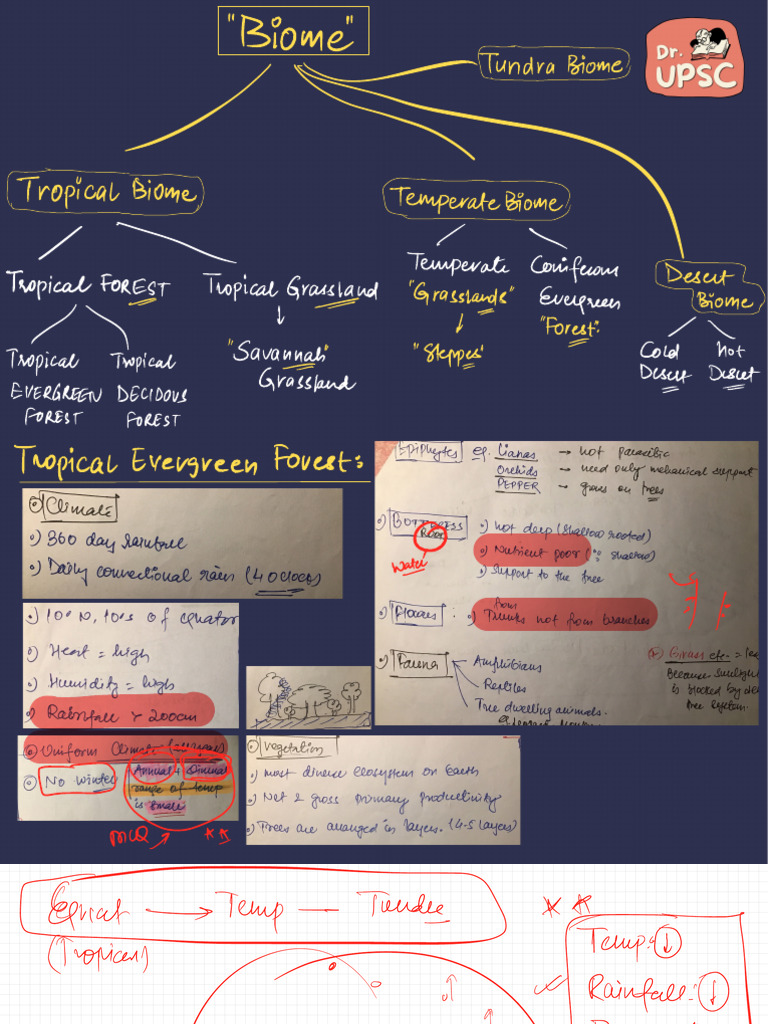 "Biome"
Tundra Biome
Dr.
UPSC
Tropical Biome
Temperate Biome
Tropical FOREST
Tropical Grassland
Temperate
"Grasslands"
"Steppes"
Coniferous
Evergreen
"Forest:
Desert
Biome
Cold
Desert
hot
Desert
"Savannah"
Grassland
Tropical
EVERGREEN
FOREST
Tropical
DECIDOUS
FOREST
Tropical Evergreen Forest:
Climate
360 day rainfall
Daily convectional rain (4 oclock)
10° N, 10° S of equator
Heat = high
Humidity = high
Rainfall > 200cm
Uniform Climate
No winter
Annual & Diurnal
range of temp
is small
MCQ
Epiphytes eg. Lianas → not parasitic
Orchids → need only mechanical support
PEPPER → grows on trees
BUTTRESS
Root
Water
not deep (shallow rooted)
Nutrient poor (∵ shallow)
Support to the tree
Flowers : from
Trunks not from branches
Fauna
Amphibians
Reptiles
Tree dwelling animals.
Grass etc. =
Because sunlight
is blocked by
tree system.
Vegetation
most diverse ecosystem on Earth
Net & gross primary productivity
Trees are arranged in layers. (4-5 layers)
Equat → Temp — Tundra
(Tropical)
Temp: ↓
Rainfall: ↓